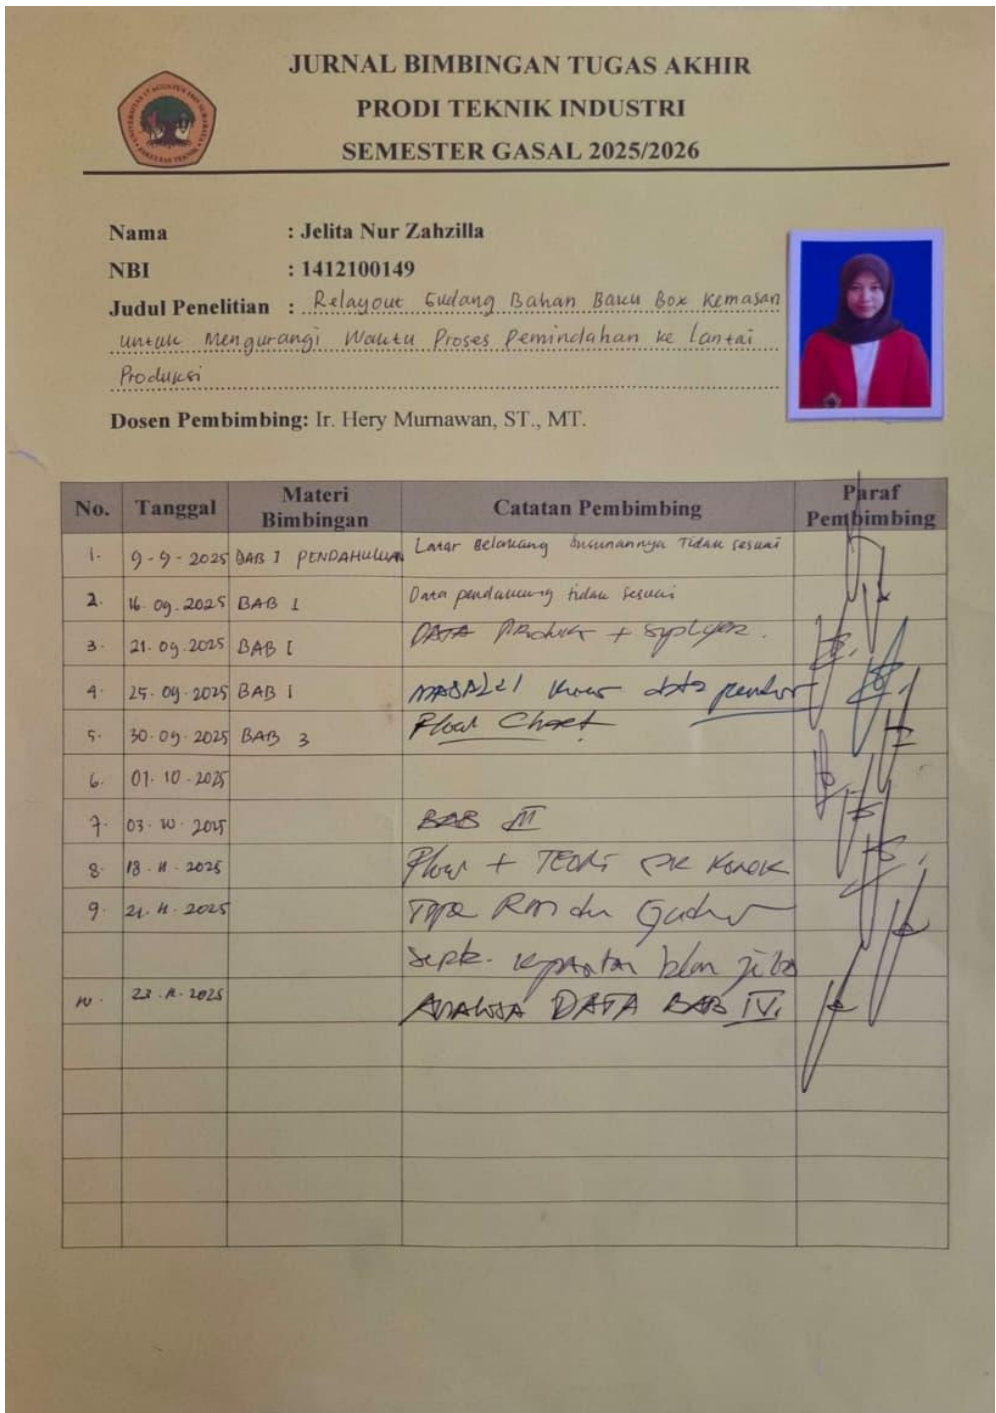 JURNAL BIMBINGAN TUGAS AKHIR
PRODI TEKNIK INDUSTRI
SEMESTER GASAL 2025/2026
Nama : Jelita Nur Zahzilla
NBI : 1412100149
Judul Penelitian : Relayout Gudang Bahan Baku Box Kemasan
untuk Mengurangi Waktu Proses Pemindahan ke Lantai
Produksi
Dosen Pembimbing: Ir. Hery Murnawan, ST., MT.
No. Tanggal Materi Bimbingan Catatan Pembimbing Paraf Pembimbing
1. 9-9-2025 BAB I PENDAHULUAN Latar Belakang Susunannya Tidak sesuai
2. 16.09.2025 BAB I Data pendukung tidak sesuai
3. 21.09.2025 BAB I DATA Produk +
4. 25.09.2025 BAB I data
5. 30.09.2025 BAB 3 Flow Chart
6. 01.10.2025
7. 03.10.2025 BAB III
8. 18.11.2025 Flow + TEORI
9. 21.11.2025
10. 23.11.2025 ANALISA DATA BAB IV.